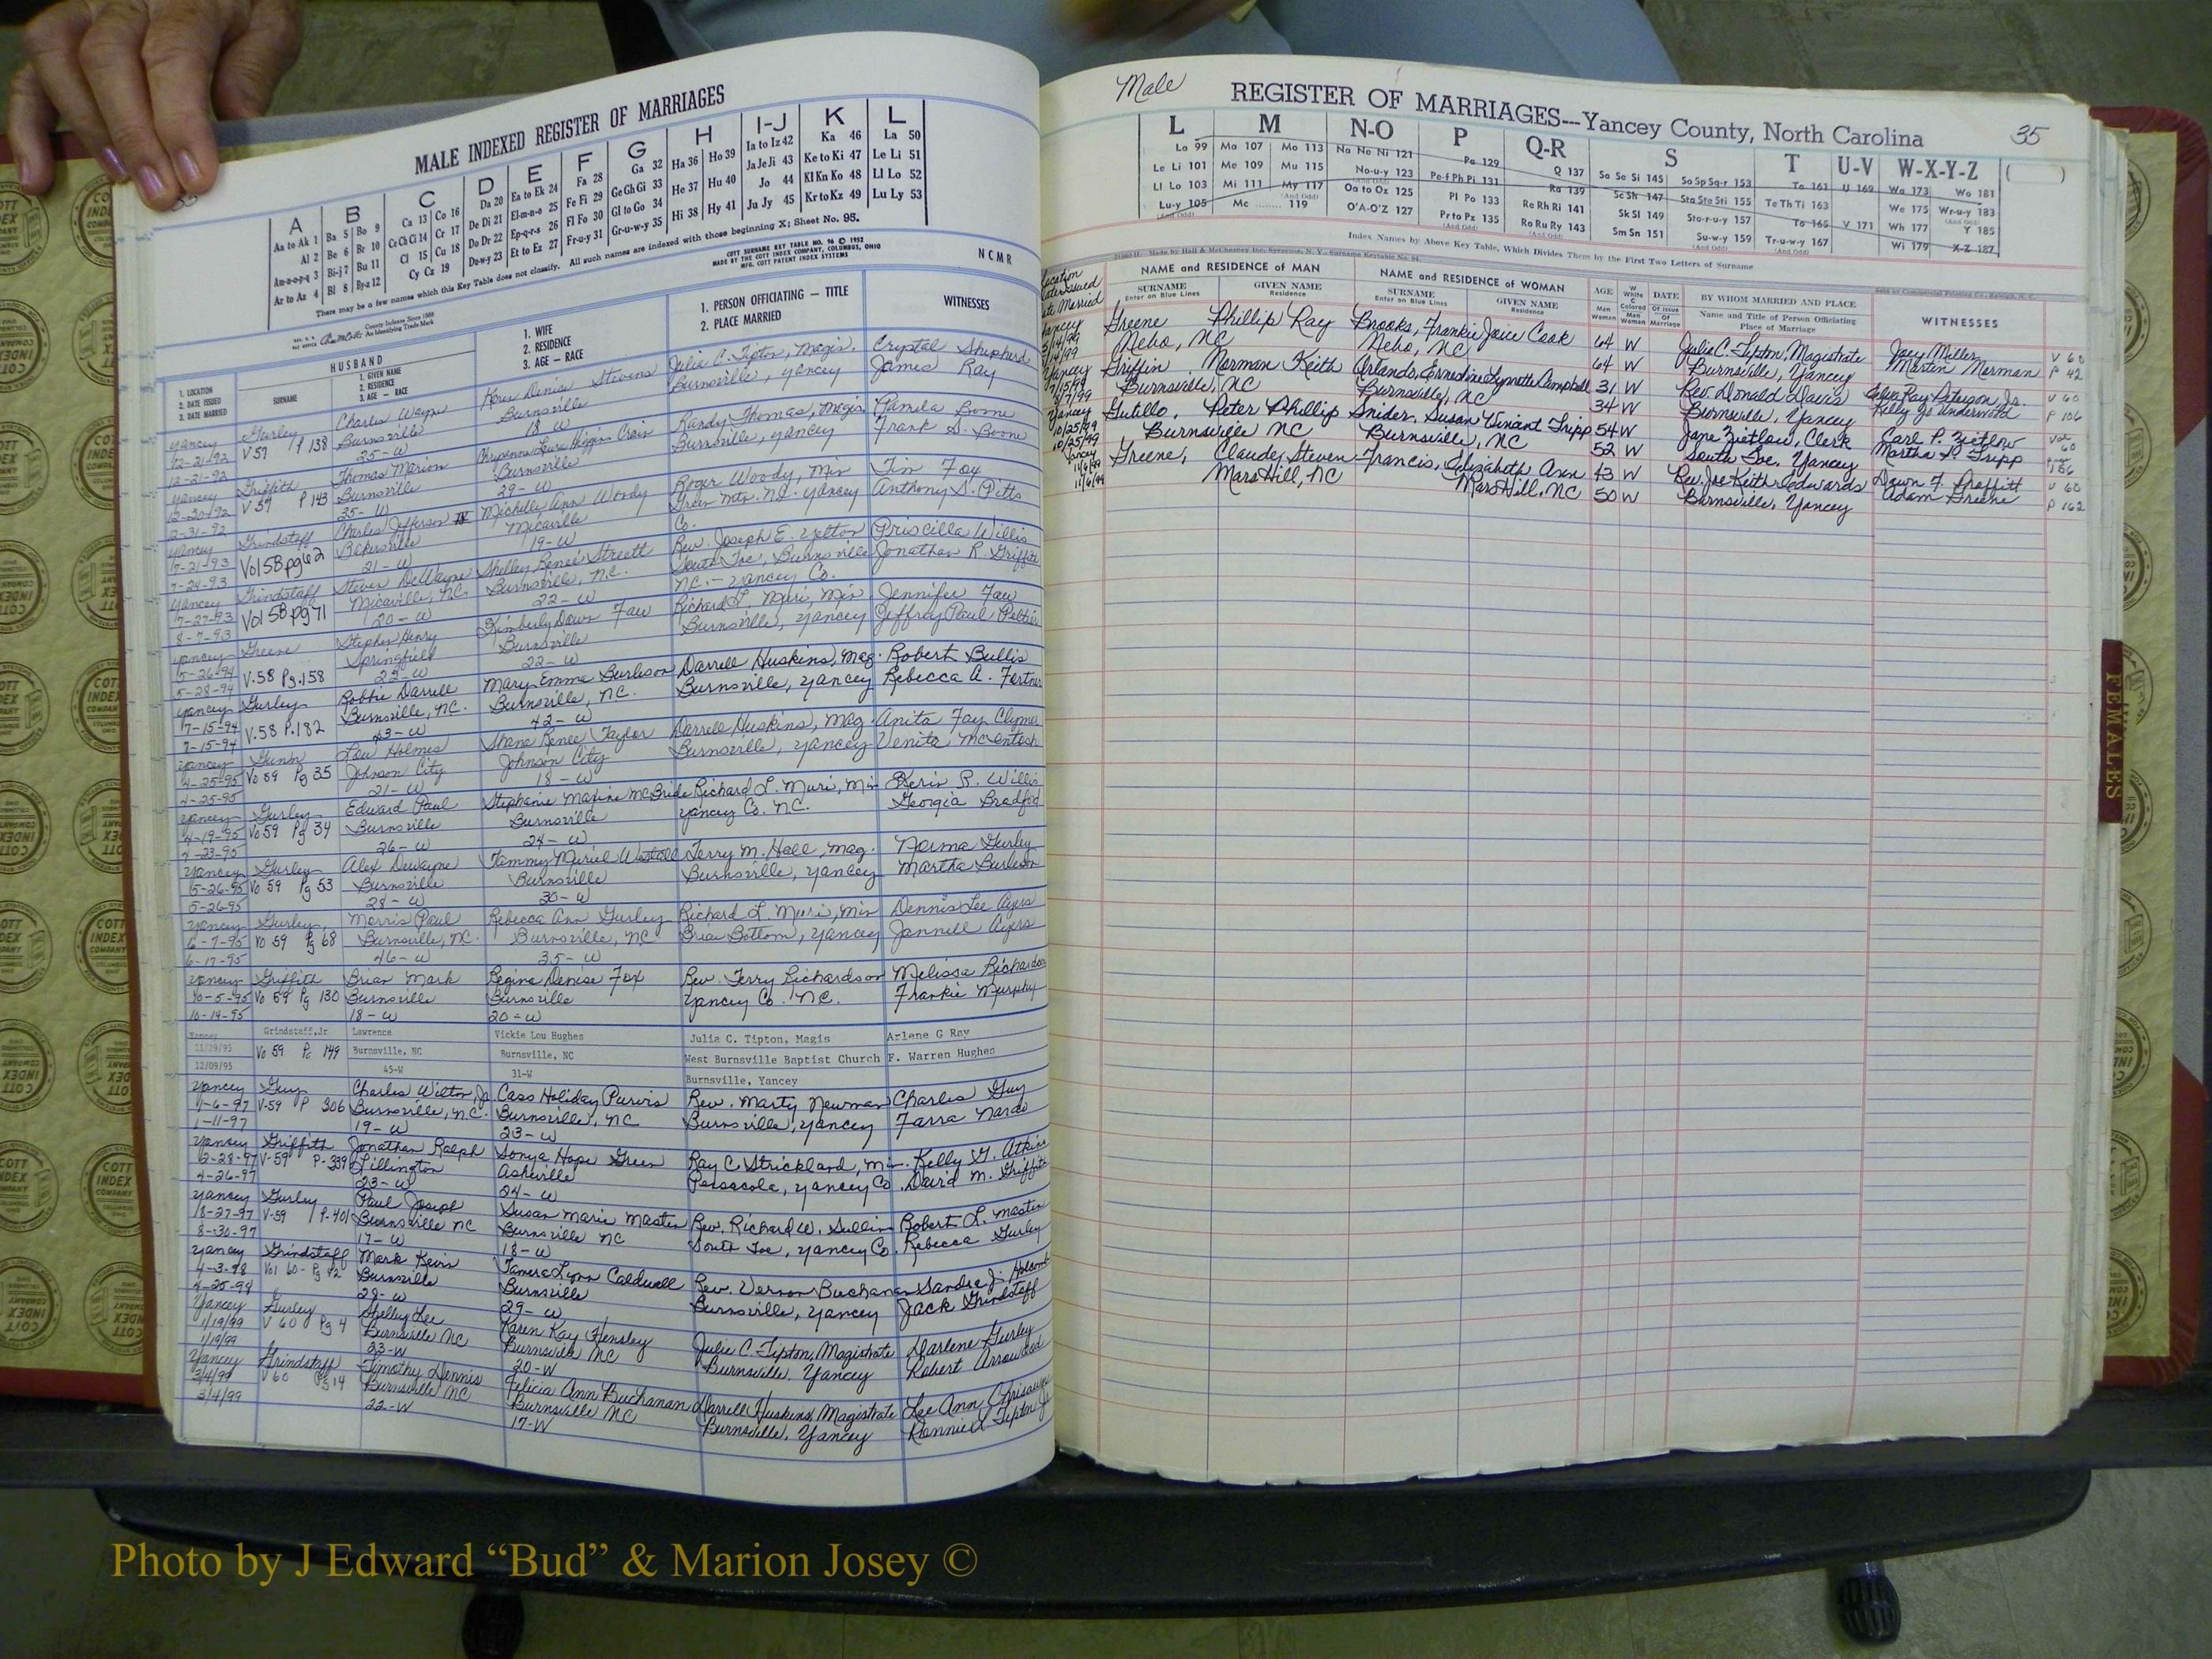 MALE INDEXED REGISTER OF MARRIAGES
A B C D E F G H I-J K L
Aa to Ak 1 Ba 5 Bo 9 Ca 13 Co 16 Da 20 Ea to Ek 24 Fa 28 Ga 32 Ha 36 Ho 39 Ia to Iz 42 Ka 46 La 50
Al 2 Be 6 Br 10 Ce Ch Ci 14 Cr 17 De Di 21 El-m-n-o 25 Fe Fi 29 Ge Gh Gi 33 He 37 Hu 40 Ja Je Ji 43 Ke to Ki 47 Le Li 51
Am-n-o-p-q 3 Bi-j 7 Bu 11 Cl 15 Cu 18 Do Dr 22 Ep-q-r-s 26 Fl Fo 30 Gl to Go 34 Hi 38 Hy 41 Jo 44 Kl Kn Ko 48 Ll Lo 52
Ar to Az 4 Bl 8 By-z 12 Cy Cz 19 De-w-y 23 Et to Ez 27 Fr-u-y 31 Gr-u-w-y 35 Ju Jy 45 Kr to Kz 49 Lu Ly 53
There may be a few names which this Key Table does not classify. All such names are indexed with those beginning X; Sheet No. 95.
County Indexes Since 1888
An Identifying Trade Mark
COTT SURNAME KEY TABLE NO. 96 © 1952
MADE BY THE COTT INDEX COMPANY, COLUMBUS, OHIO
MFG. COTT PATENT INDEX SYSTEMS
NCMR
1. LOCATION
2. DATE ISSUED
3. DATE MARRIED
HUSBAND
SURNAME
1. GIVEN NAME
2. RESIDENCE
3. AGE — RACE
1. WIFE
2. RESIDENCE
3. AGE — RACE
1. PERSON OFFICIATING — TITLE
2. PLACE MARRIED
WITNESSES
Yancey Gurley Charles Wayne Karen Denise Stevens Julia C. Tipton, Magis. Crystal Shepherd
12-21-92 V57 P 138 Burnsville Burnsville Burnsville, Yancey James Ray
12-21-92 25-W 18 W
Yancey Griffith Thomas Marion Randy Thomas, Magis. Pamela Boone
12-30-92 V57 P 143 Burnsville Burnsville Burnsville, Yancey Frank S. Boone
12-31-92 35-W 29-W
Yancey Grindstaff Charles Jefferson IV Michelle Ann Woody Roger Woody, Min Tim Foy
7-21-93 Vol 58 pg 62 Bakersville Micaville Green Mtn. NC. Yancey Co. Anthony S. Pitts
7-24-93 21-W 19-W
Yancey Grindstaff Steven DeWayne Shelley Reneé Streett Rev. Joseph E. Yelton Priscilla Willis
7-27-93 Vol 58 pg 71 Micaville, NC. Burnsville, N.C. South Toe, Burnsville NC.- Yancey Co. Jonathan R. Griffith
8-7-93 20-W 22-W
Yancey Greene Stephen Henry Kimberly Dawn Faw Richard L. Muri, Min Jennifer Faw
5-26-94 V.58 Pg.158 Springfield Burnsville Burnsville, Yancey Jeffrey Paul
5-28-94 22-W
Yancey Gurley Robbie Darrell Mary Emma Burleson Darrell Huskins, Mag. Robert Bullis
7-15-94 V.58 P.182 Burnsville, NC. Burnsville, NC. Burnsville, Yancey Rebecca A. Fortner
7-15-94 43-W 42-W
Yancey Gunn Lou Holmes Renee Taylor Darrell Huskins, Mag. Anita Fay Clymer
4-25-95 Vo 59 Pg 35 Johnson City Johnson City Burnsville, Yancey Venita McEntosh
4-25-95 21-W 18-W
Yancey Gurley Edward Paul Stephanie Maxine McBride Richard L. Muri, Min R. Willis
4-19-95 Vo 59 Pg 34 Burnsville Burnsville Yancey Co. N.C. Georgia Bradford
4-23-95 26-W 24-W
Yancey Gurley Alex Dewayne Tammy Muriel Westall Terry M. Hall, Mag. Norma Gurley
5-26-95 Vo 59 Pg 53 Burnsville Burnsville Burnsville, Yancey Martha Burleson
5-26-95 28-W 30-W
Yancey Gurley Morris Paul Rebecca Ann Gurley Richard L. Muri, Min Dennis Lee Ayers
6-7-95 Vo 59 Pg 68 Burnsville, NC. Burnsville, NC. Briar Bottom, Yancey Jannell Ayers
6-17-95 46-W 35-W
Yancey Griffith Brian Mark Regina Denise Fox Rev. Terry Richardson Melissa Richardson
10-5-95 Vo 59 Pg 130 Burnsville Burnsville Yancey Co. NC. Frankie Murphy
10-14-95 18-W 20-W
Yancey Grindstaff, Jr Lawrence Vickie Lou Hughes Julia C. Tipton, Magis Arlene G Ray
11/09/95 Vo 59 Pg 149 Burnsville, NC Burnsville, NC West Burnsville Baptist Church F. Warren Hughes
12/09/95 45-W 31-W Burnsville, Yancey
Yancey Guy Charles Wilton, Jr Cass Holiday Purvis Rev. Marty Newman Charles Guy
1-6-97 V-59 P 306 Burnsville, N.C. Burnsville, NC Burnsville, Yancey Farra Nardo
1-11-97 19-W 23-W
Yancey Griffith Jonathan Ralph Sonya Hope Green Ray C. Strickland, Min. Kelly G. Atkins
2-28-97 V-59 P-339 Lillington Asheville Pensacola, Yancey Co. David M. Griffith
4-26-97 23-W 24-W
Yancey Gurley Paul Joseph Susan Marie Master Rev. Richard W. Sullins Robert L. Master
8-27-97 V-59 P-401 Burnsville NC Burnsville NC South Toe, Yancey Co. Rebecca Gurley
8-30-97 17-W 18-W
Yancey Grindstaff Mark Kevin Tamera Lynn Caldwell Rev. Vernon Buchanan Sandra J. Holcombe
4-3-98 Vol 60- Pg 42 Burnsville Burnsville Burnsville, Yancey Jack Grindstaff
4-25-98 28-W 29-W
Yancey Gurley Shelley Lee Karen Kay Hensley Julia C. Tipton, Magistrate Darlene Gurley
1/19/99 V 60 Pg 4 Burnsville NC Burnsville NC Burnsville, Yancey Robert Arrowood
1/19/99 23-W 20-W
Yancey Grindstaff Timothy Dennis Felicia Ann Buchanan Darrell Huskins, Magistrate Lee Ann Chrisawn
3/4/99 V 60 Pg 14 Burnsville NC Burnsville NC Burnsville, Yancey Ronnie L Tipton Jr
3/4/99 22-W 17-W
Male REGISTER OF MARRIAGES---Yancey County, North Carolina 35
L M N-O P Q-R S T U-V W-X-Y-Z ( )
La 99 Ma 107 Mo 113 Na Ne Ni 121 Pa 129 Q 137 Sa Se Si 145 Sp Sq-r 153 Ta 161 U 169 Wa 173 Wo 181
Le Li 101 Me 109 Mu 115 No-u-y 123 Pe-f Ph Pi 131 Ra 139 Sc Sh 147 Sta Ste Sti 155 Te Th Ti 163 We 175 Wr-u-y 183
Ll Lo 103 Mi 111 My 117 Oa to Oz 125 Pl Po 133 Re Rh Ri 141 Sk Sl 149 Sto-r-u-y 157 To 165 V 171 Wh 177 Y 185
Lu-y 105 Mc 119 O'A-O'Z 127 Pr to Pz 135 Ro Ru Ry 143 Sm Sn 151 Su-w-y 159 Tr-u-w-y 167 Wi 179 X-Z 187
Index Names by Above Key Table, Which Divides Them by the First Two Letters of Surname
Made by Hall & McChesney Inc. Syracuse, N. Y., Surname Keytable No. 94.
Sold by Commercial Printing Co., Raleigh, N. C.
Location
Date Issued
Date Married
NAME and RESIDENCE of MAN
SURNAME
Enter on Blue Lines
GIVEN NAME
Residence
NAME and RESIDENCE of WOMAN
SURNAME
Enter on Blue Lines
GIVEN NAME
Residence
AGE
Man
Woman
W
White
C
Colored
Man
Woman
DATE
Of Issue
Of
Marriage
BY WHOM MARRIED AND PLACE
Name and Title of Person Officiating
Place of Marriage
WITNESSES
Yancey Greene Phillip Ray Brooks, Frankie Joice Cook 64 W Julia C. Tipton, Magistrate Joey Miller V 60
5/14/99 Nebo, NC Nebo, NC 64 W Burnsville, Yancey Martin Norman P 42
Yancey Griffin Norman Keith Orlando, Ernestine Lynnette Campbell 31 W Rev. Donald Davis Ray Peterson, Jr. V 60
Burnsville, NC Burnsville, NC 34 W Burnsville, Yancey Kelly Jo Underwood P 106
Yancey Gutillo, Peter Phillip Snider, Susan Vinant Tripp 54 W Jane Zietlow, Clerk Carl P. Zietlow Vol 60
10/25/99 Burnsville NC Burnsville, NC 52 W South Toe, Yancey Martha S. Tripp 156
10/25/99
Yancey Greene, Claudey Steven Francis, Elizabeth Ann 43 W Rev. Joe Keith Edwards Dawn F. Proffitt V 60
11/6/99 Mars Hill, NC Mars Hill, NC 50 W Burnsville, Yancey Adam Greene P 162
11/6/99
FEMALES
Photo by J Edward “Bud” & Marion Josey ©